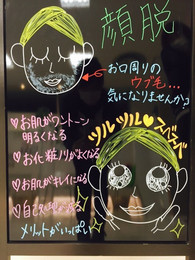 顔脱
お口周りの
ウブ毛…
気になりませんか?
ツルツル♡スベスベ
♡お肌がワントーン
明るくなる
♡お化粧ノリがよくなる
♡お肌がキレイになる
♡自己
メリットがいっぱい